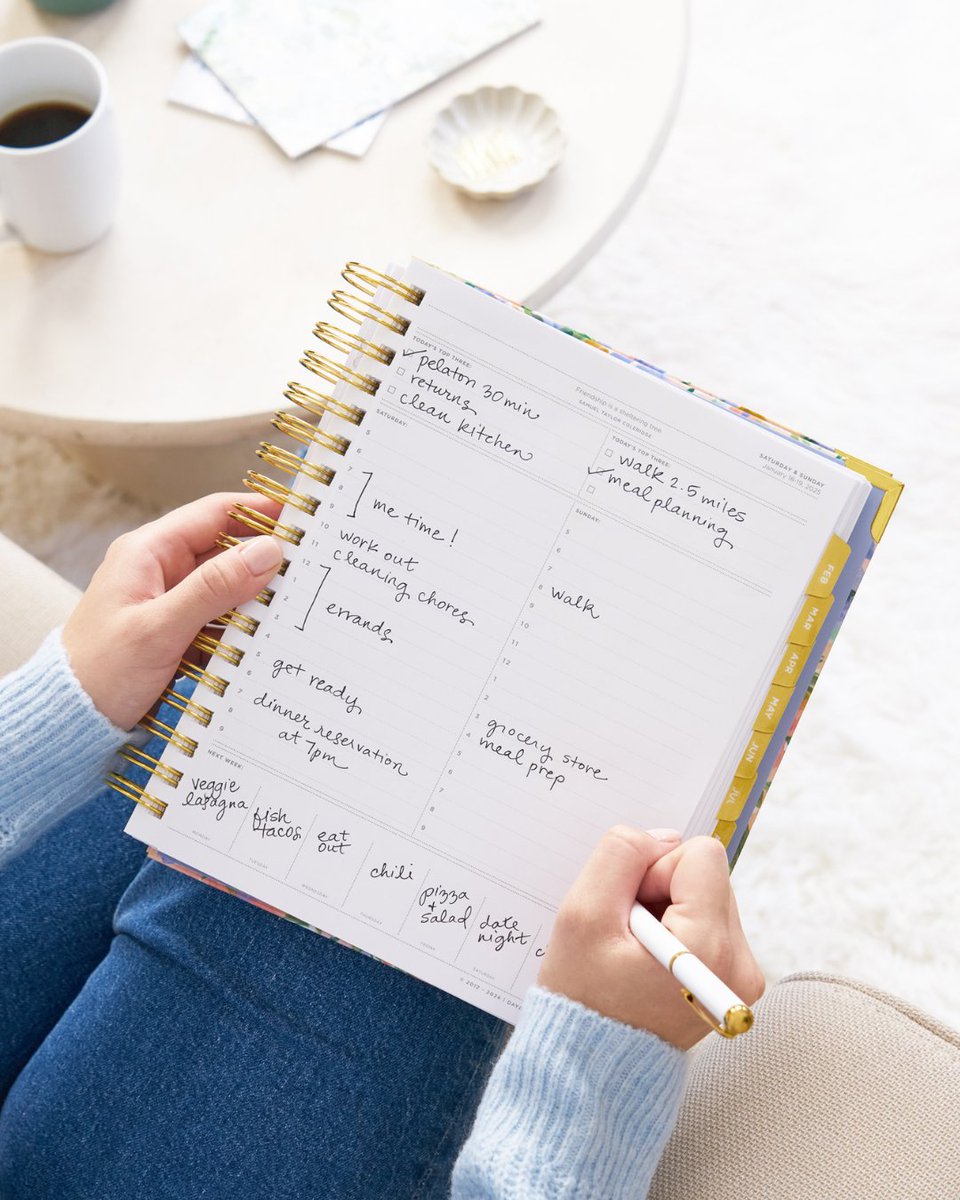 Friendship is a sheltering tree.
SAMUEL TAYLOR COLERIDGE
SATURDAY & SUNDAY
January 18-19, 2025
TODAY'S TOP THREE:
pelaton 30 min
returns
clean kitchen
SATURDAY:
5
6
7
8
9
me time!
10
work out
11
cleaning chores
12
1
2
3
errands
4
5
get ready
6
7
dinner reservation
at 7pm
8
9
TODAY'S TOP THREE:
walk 2.5 miles
meal planning
SUNDAY:
5
6
7
8
walk
9
10
11
12
1
2
3
grocery store
4
meal prep
5
6
7
8
9
NEXT WEEK:
veggie
lasagna
MONDAY
fish
tacos
TUESDAY
eat
out
WEDNESDAY
chili
THURSDAY
pizza
+
salad
FRIDAY
date
night
SATURDAY
© 2012 - 2024
FEB
MAR
APR
MAY
JUN
JUL